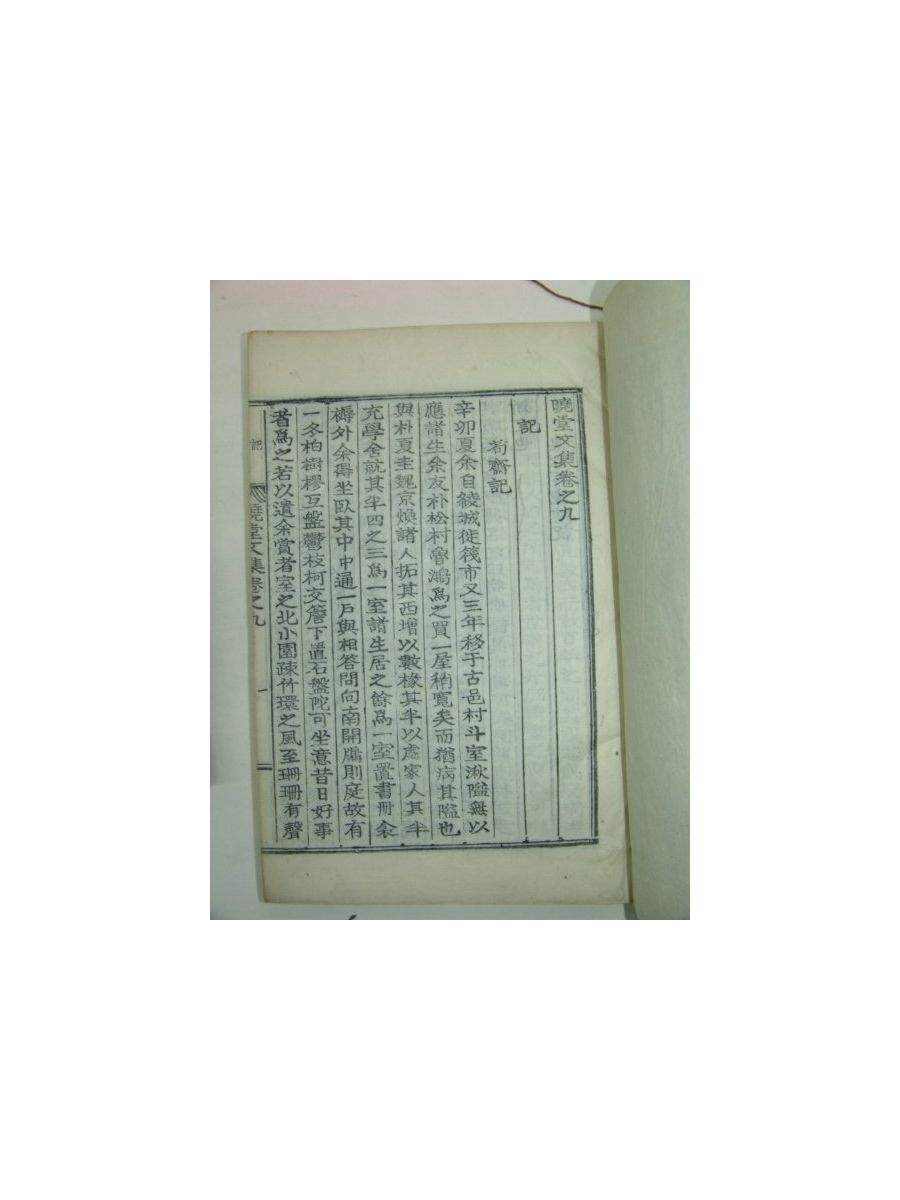 曉堂文集卷之九
記
苟齋記
辛卯夏余自綾城徙筏市又三年移于古邑村斗室湫隘無以
應諸生余友朴松村魯鴻爲之買一屋稍寬矣而猶病其隘也
與朴夏圭魏京煥諸人拓其西增以數椽其半以處家人其半
充學舍就其半四之三爲一室諸生居之餘爲一室置書冊衾
褥外余得坐臥其中中通一戶與相答問向南開牖則庭故有
一冬柏樹樛互盤鬱枝柯交簷下置石盤陀可坐意昔日好事
者爲之若以遺余賞者室之北小園疎竹環之風至珊珊有聲
記
曉堂文集卷之九
一